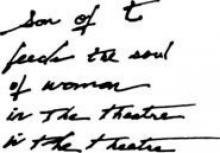 son of t
feeds the soul
of woman
in The theatre
in the theatre